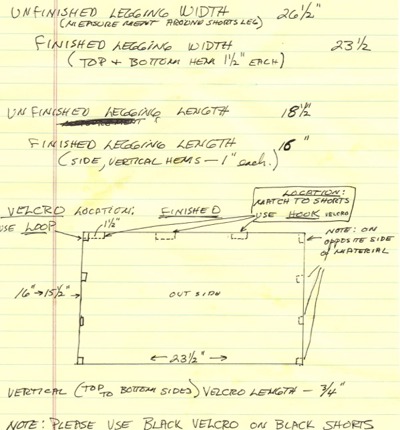 UNFINISHED LEGGING WIDTH 26½"
(MEASUREMENT AROUND SHORTS LEG)
FINISHED LEGGING WIDTH 23½
(TOP + BOTTOM HEM 1½" EACH)
UNFINISHED LEGGING LENGTH 18½"
FINISHED LEGGING LENGTH 16"
(SIDE, VERTICAL HEMS — 1" each.)
LOCATION:
MATCH TO SHORTS
USE HOOK VELCRO
VELCRO LOCATION: FINISHED
USE LOOP
1½"
NOTE: ON
OPPOSITE SIDE
OF MATERIAL
16" → 15½"
OUTSIDE
23½"
VERTICAL (TOP TO BOTTOM SIDES) VELCRO LENGTH - ¾"
NOTE: PLEASE USE BLACK VELCRO ON BLACK SHORTS